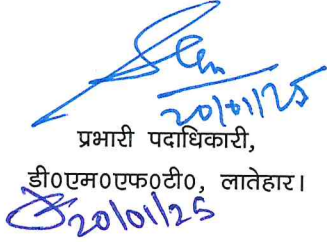 20/01/25
प्रभारी पदाधिकारी,
डी०एम०एफ०टी०, लातेहार।
20/01/25